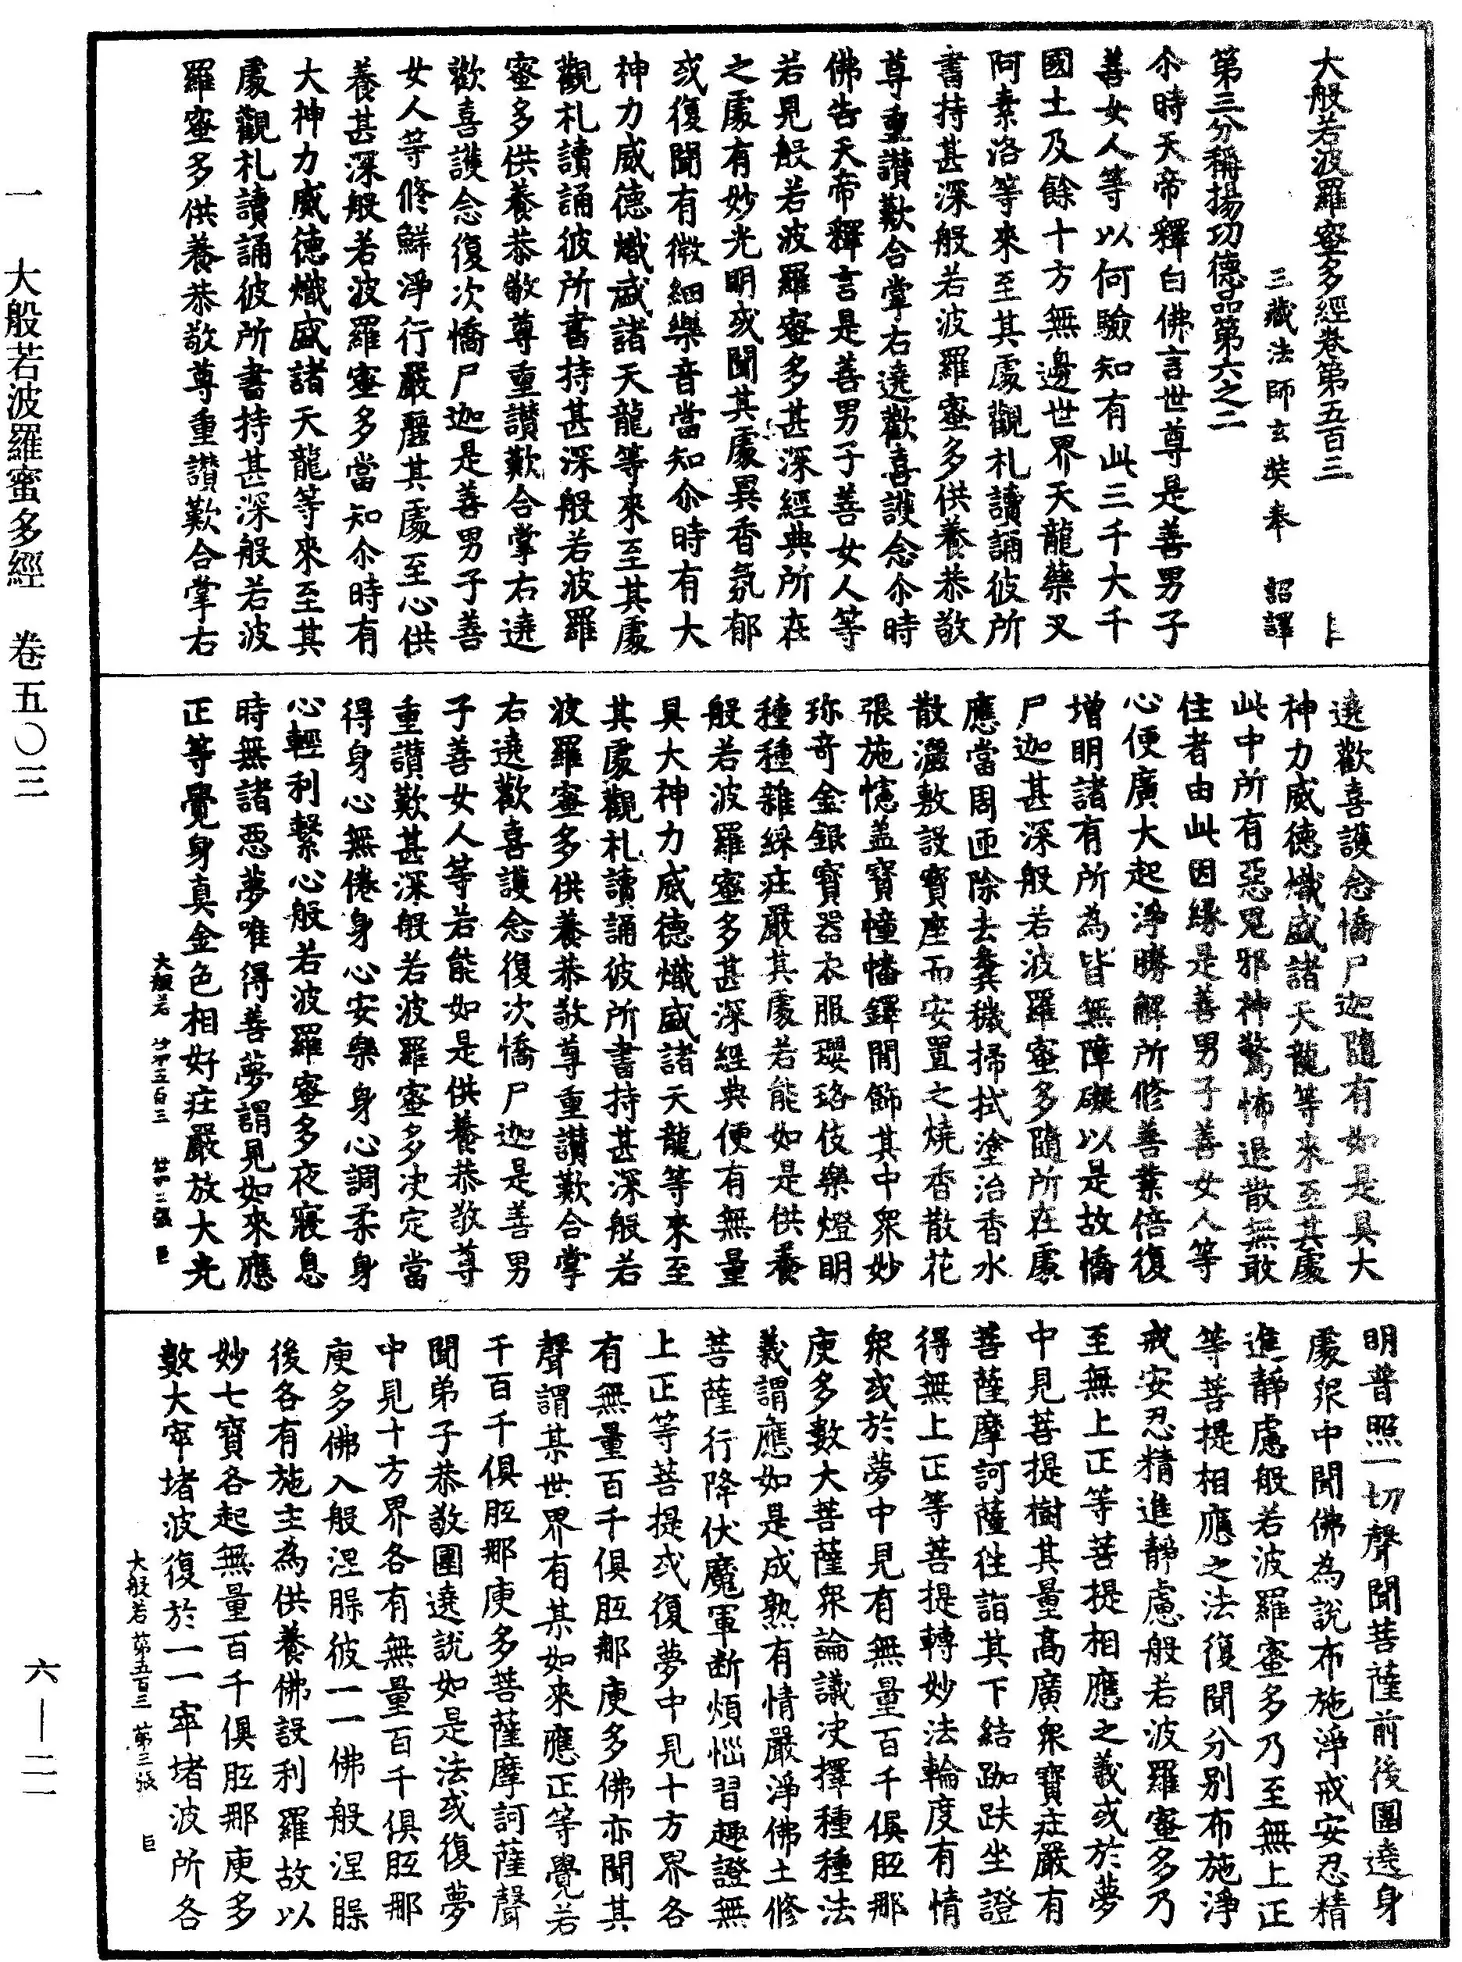 大般若波羅蜜多經卷第五百三
三藏法師玄奘奉 詔譯
第三分稱揚功德品第六之二
尒時天帝釋白佛言世尊是善男子
善女人等以何驗知有此三千大千
國土及餘十方無邊世界天龍藥叉
阿素洛等來至其處觀礼讀誦彼所
書持甚深般若波羅蜜多供養恭敬
尊重讃歎合掌右遶歡喜護念尒時
佛告天帝釋言是善男子善女人等
若見般若波羅蜜多甚深經典所在
之處有妙光明或聞其處異香氛郁
或復聞有微細樂音當知尒時有大
神力威德熾盛諸天龍等來至其處
觀礼讀誦彼所書持甚深般若波羅
蜜多供養恭敬尊重讃歎合掌右遶
歡喜護念復次憍尸迦是善男子善
女人等修鮮淨行嚴麗其處至心供
養甚深般若波羅蜜多當知尒時有
大神力威德熾盛諸天龍等來至其
處觀礼讀誦彼所書持甚深般若波
羅蜜多供養恭敬尊重讃歎合掌右
遶歡喜護念憍尸迦隨有如是具大
神力威德熾盛諸天龍等來至其處
此中所有惡鬼邪神驚怖退散無敢
住者由此因緣是善男子善女人等
心便廣大起淨勝解所修善業倍復
增明諸有所為皆無障礙以是故憍
尸迦甚深般若波羅蜜多隨所在處
應當周匝除去糞穢掃拭塗治香水
散灑敷設寶座而安置之燒香散花
張施幰盖寶幢幡鐸閒飾其中衆妙
珎奇金銀寶器衣服瓔珞伎樂燈明
種種雜綵莊嚴其處若能如是供養
般若波羅蜜多甚深經典便有無量
具大神力威德熾盛諸天龍等來至
其處觀礼讀誦彼所書持甚深般若
波羅蜜多供養恭敬尊重讃歎合掌
右遶歡喜護念復次憍尸迦是善男
子善女人等若能如是供養恭敬尊
重讃歎甚深般若波羅蜜多決定當
得身心無倦身心安樂身心調柔身
心輕利繫心般若波羅蜜多夜寢息
時無諸惡夢唯得善夢謂見如來應
正等覺身真金色相好莊嚴放大光
明普照一切聲聞菩薩前後圍遶身
處衆中聞佛為說布施淨戒安忍精
進靜慮般若波羅蜜多乃至無上正
等菩提相應之法復聞分別布施淨
戒安忍精進靜慮般若波羅蜜多乃
至無上正等菩提相應之義或於夢
中見菩提樹其量高廣衆寶莊嚴有
菩薩摩訶薩往詣其下結跏趺坐證
得無上正等菩提轉妙法輪度有情
衆或於夢中見有無量百千俱胝那
庾多數大菩薩衆論議決擇種種法
義謂應如是成熟有情嚴淨佛土修
菩薩行降伏魔軍断煩惱習趣證無
上正等菩提或復夢中見十方界各
有無量百千俱胝那庾多佛亦聞其
聲謂某世界有某如來應正等覺若
千百千俱胝那庾多菩薩摩訶薩聲
聞弟子恭敬圍遶說如是法或復夢
中見十方界各有無量百千俱胝那
庾多佛入般涅槃彼一一佛般涅槃
後各有施主為供養佛設利羅故以
妙七寶各起無量百千俱胝那庾多
數大窣堵波復於一一窣堵波所各
大般若 第五百三 第二張 巨
大般若 第五百三 第三張 巨
一 大般若波羅蜜多經 卷五〇三
六—二一